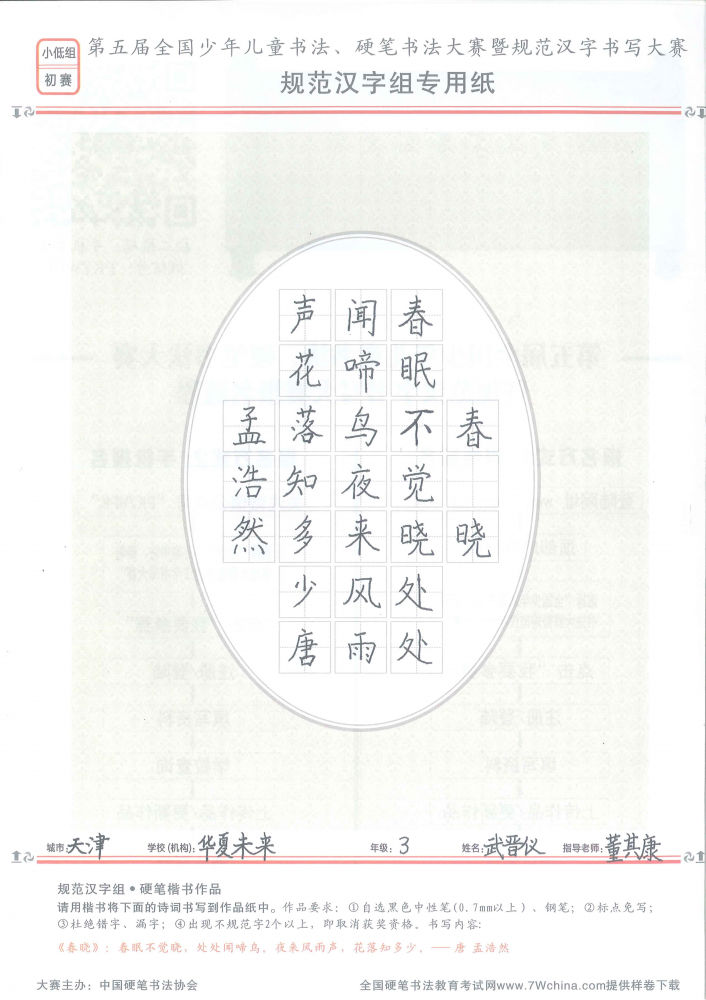 小低组
初赛
第五届全国少年儿童书法、硬笔书法大赛暨规范汉字书写大赛
规范汉字组专用纸
春 晓
春眠不觉晓处处
闻啼鸟夜来风雨
声花落知多少唐
孟浩然
城市:天津 学校(机构):华夏未来 年级:3 姓名:武晋仪 指导老师:董其康
规范汉字组•硬笔楷书作品
请用楷书将下面的诗词书写到作品纸中。作品要求:①自选黑色中性笔(0.7mm以上)、钢笔;②标点免写;
③杜绝错字、漏字;④出现不规范字2个以上,即取消获奖资格。书写内容:
《春晓》:春眠不觉晓,处处闻啼鸟。夜来风雨声,花落知多少。——唐 孟浩然
大赛主办:中国硬笔书法协会 全国硬笔书法教育考试网www.7Wchina.com提供样卷下载